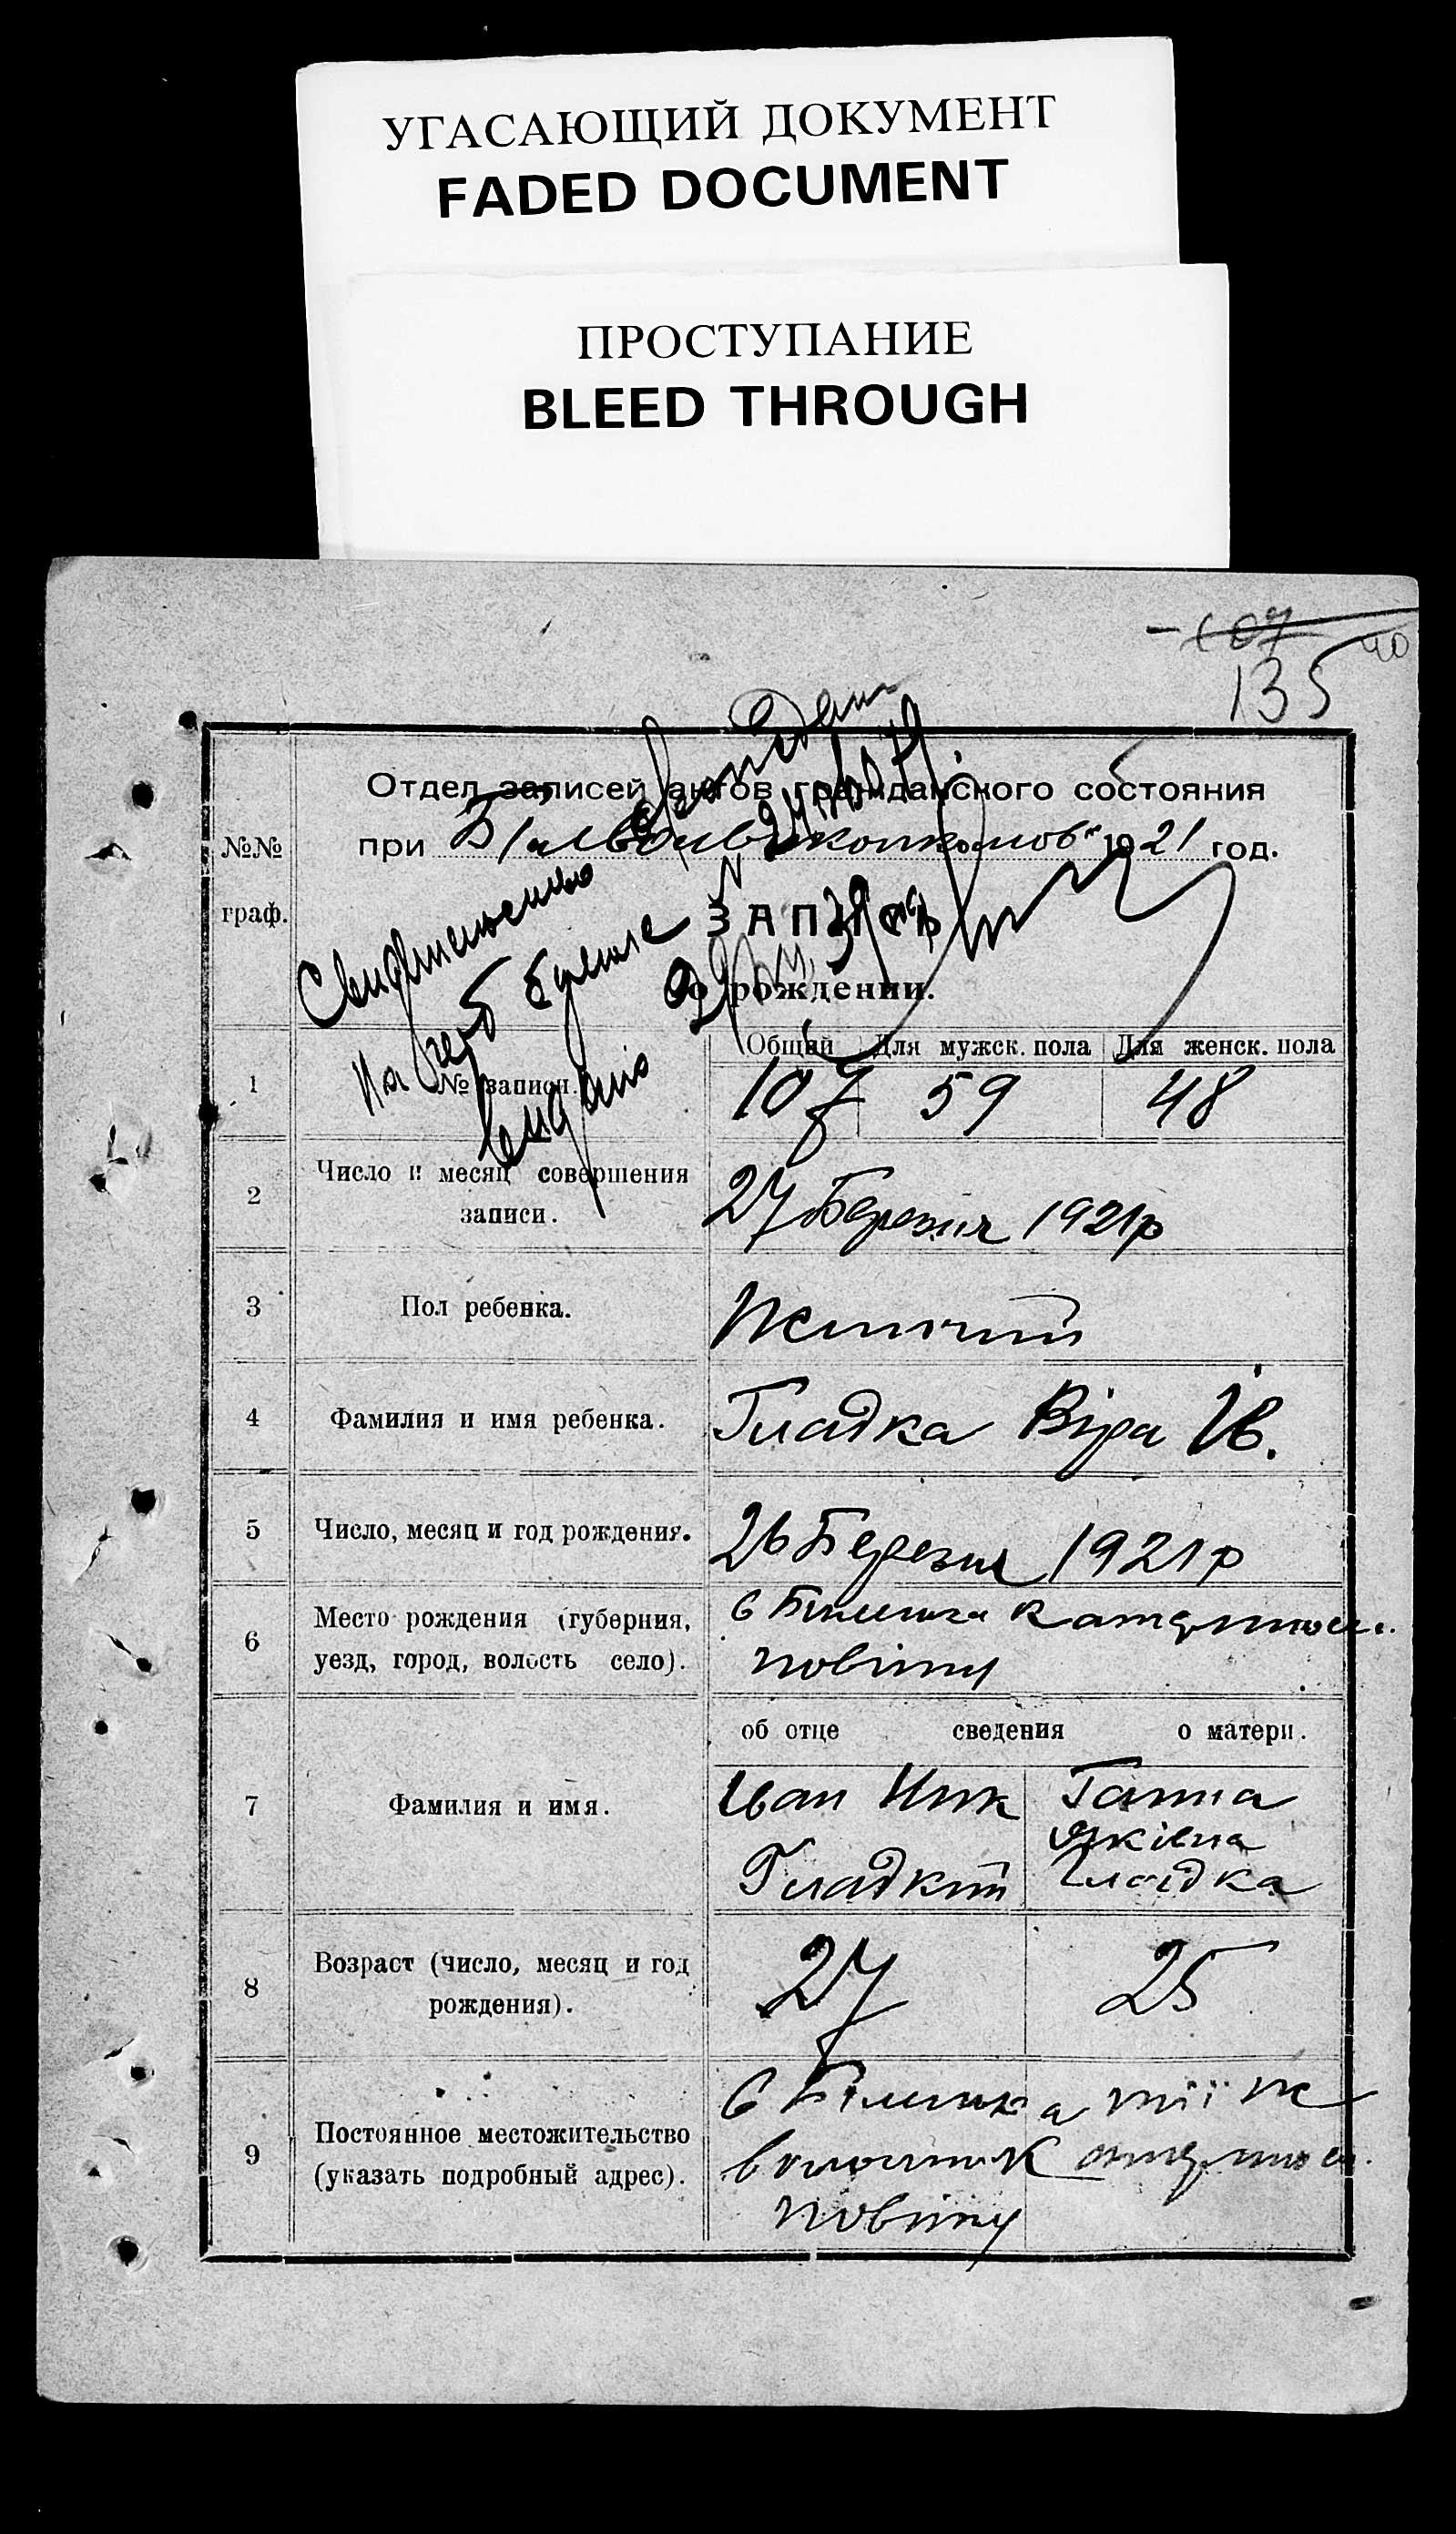 УГАСАЮЩИЙ ДОКУМЕНТ
FADED DOCUMENT
ПРОСТУПАНИЕ
BLEED THROUGH
107 40
135
Отдел записей актов гражданского состояния
№№ при 1921 год.
граф. ЗАПИСЬ
о рождении.
Свидетельство
на герб бумаге
видано
Общий Для мужск. пола Для женск. пола
1 № записи. 107 59 48
2 Число и месяц совершения
записи. 27 Березня 1921 р
3 Пол ребенка. Женочий
4 Фамилия и имя ребенка. Гладка Віра Ів.
5 Число, месяц и год рождения. 26 Березня 1921 р
6 Место рождения (губерния,
уезд, город, волость село).
с
повіту
об отце сведения о матери.
7 Фамилия и имя. Іван Ник Ганна
Яківна
Гладкий Гладка
8 Возраст (число, месяц и год
рождения). 27 25
9 Постоянное местожительство
(указать подробный адрес).
с тії ж
повіту